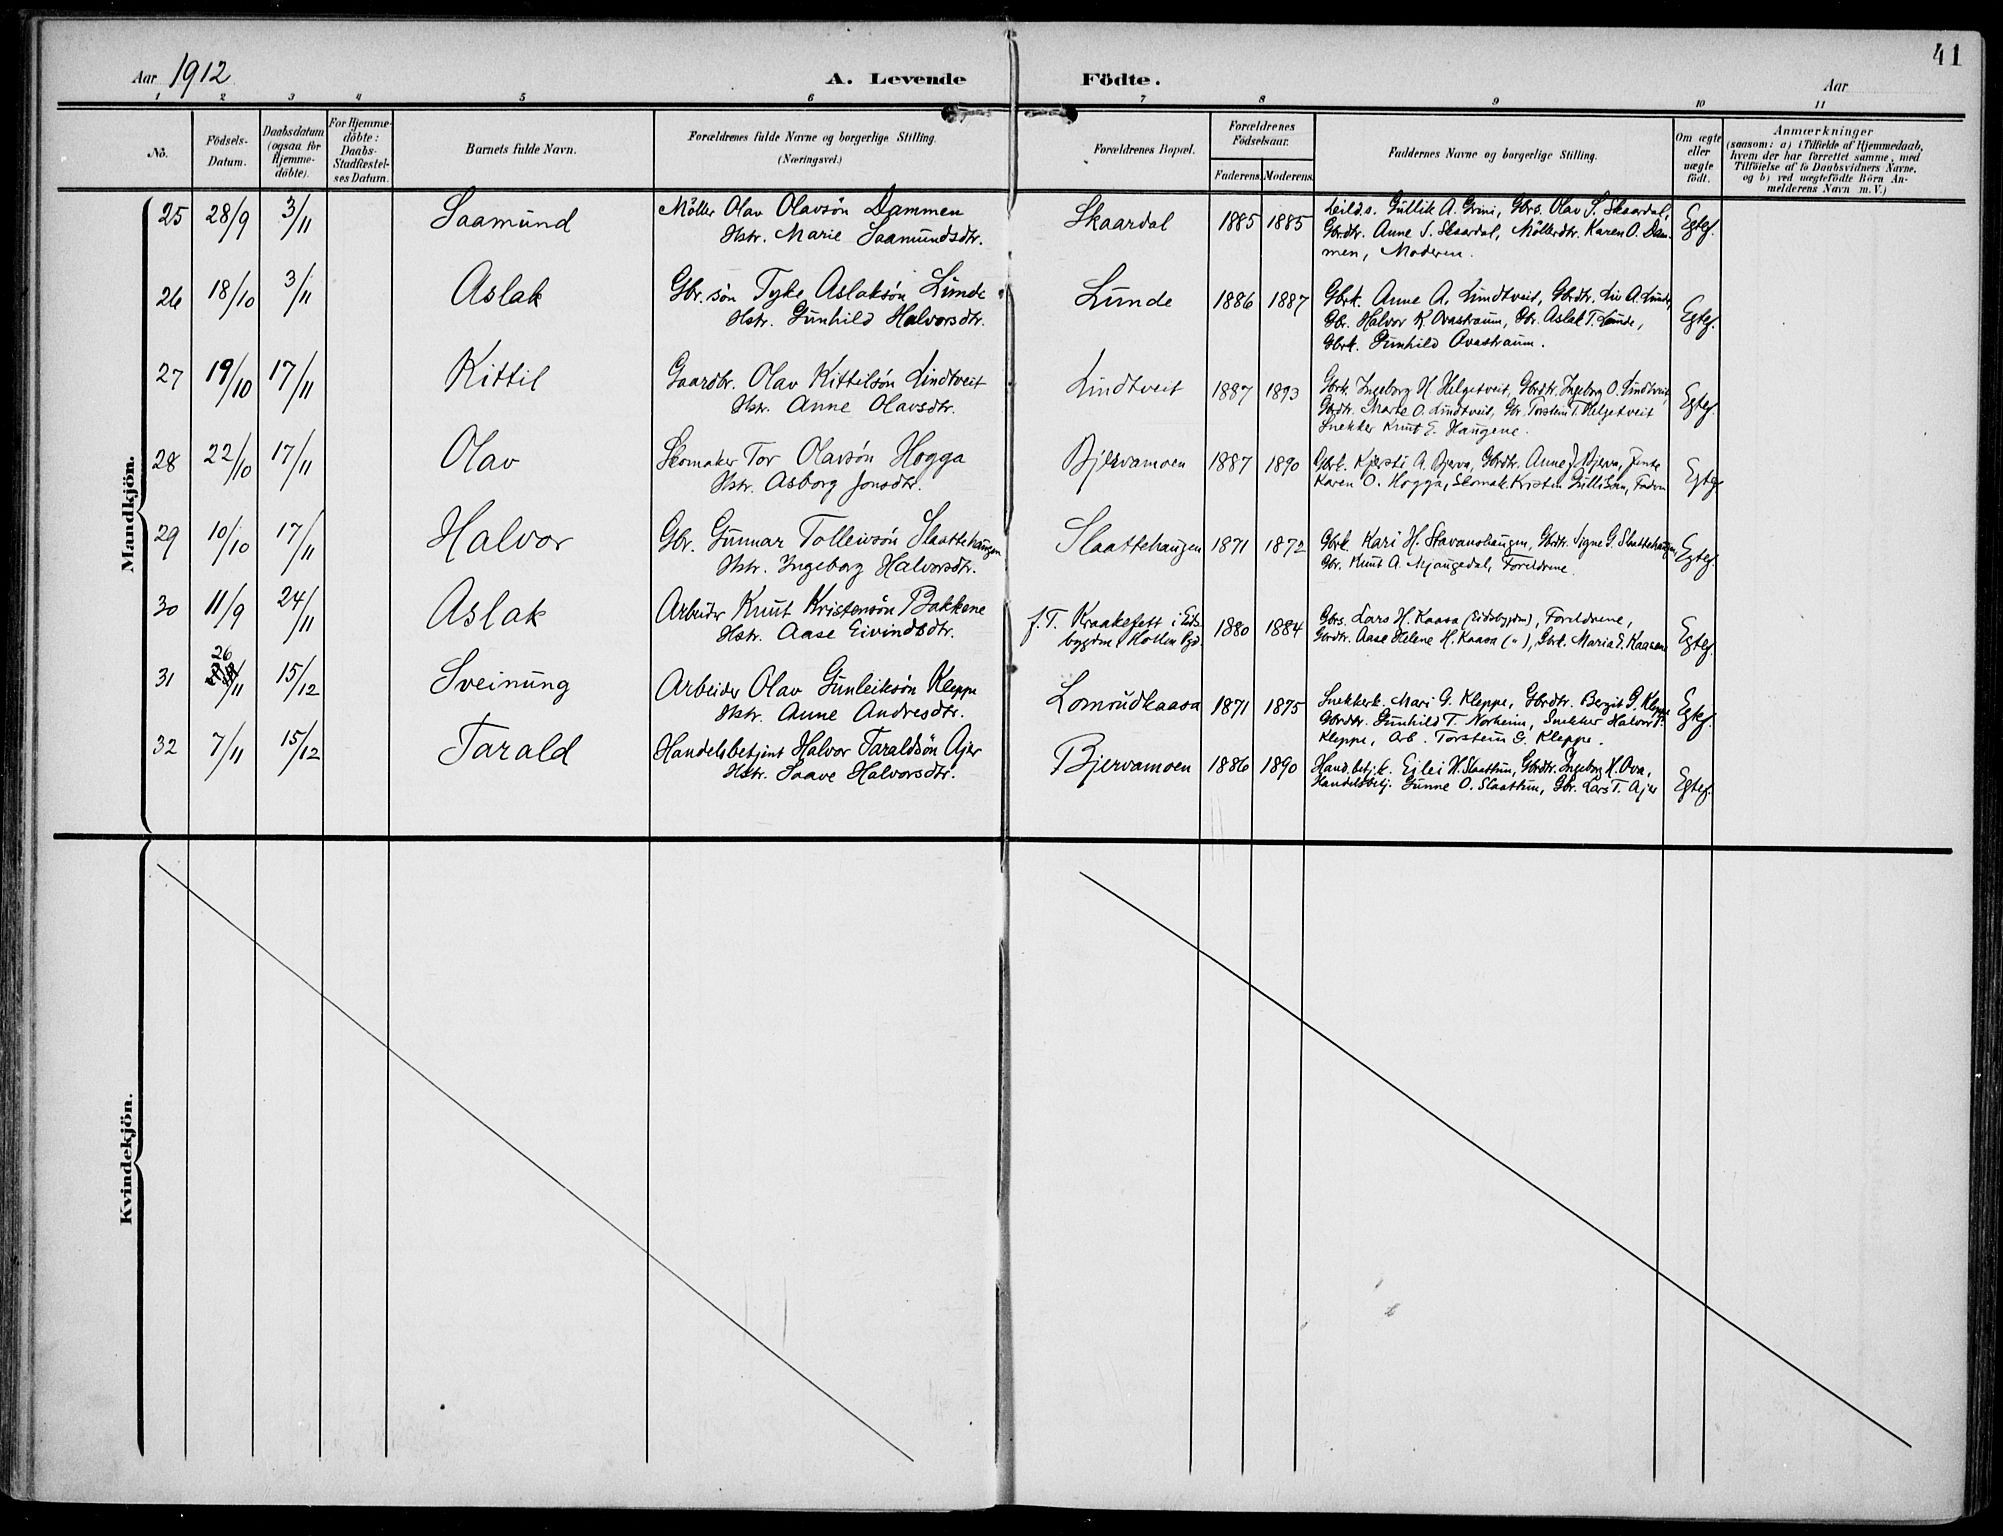 41
Aar 1912 A. Levende Födte. Aar
1 2 3 4 5 6 7 8 9 10 11
No. Födsels-Datum. Daabsdatum (ogsaa for Hjemme-döbte). For Hjemme-döbte: Daabs-Stadfæstel-ses Datum. Barnets fulde Navn. Forældrenes fulde Navne og borgerlige Stilling. (Næringsvei.) Forældrenes Bopæl. Forældrenes Födselsaar. Faderens. Moderens. Faddernes Navne og borgerlige Stilling. Om ægte eller uægte födt. Anmærkninger (saasom: a) i Tilfælde af Hjemmedaab, hvem der har forrettet samme, med Tilföielse af to Daabsvidners Navne, og b) ved uægtefödte Börn An-melderens Navn m. V.)
Mandkjön.
25 28/9 3/11 Saamund Möller Olav Olavsön Dammen Skaardal 1885 1885 Gullik A. Grini, Gbrs. Olav S. Skaardal, Egtef.
Hstr. Marie Saamundsdtr. Gbrdtr. Anne S. Skaardal, Möllerdtr. Karen O. Dam-
men, Moderen.
26 18/10 3/11 Aslak Gbr. sön Tyke Aslaksön Lunde Lunde 1886 1887 Gbrk. Anne A. Lindtveit, Gbrdtr. Liv A. Lunde, Egtef.
Hstr. Gunhild Halvorsdtr. Gbr. Halvor K. Ovastraum, Gbr. Aslak T. Lunde,
Gbrk. Gunhild Ovastraum.
27 19/10 17/11 Kittil Gaardbr. Olav Kittilsön Lindtveit Lindtveit 1887 1893 Gbrk. Ingeborg H. Helgetveit, Gbrdtr. Ingeborg O. Lindtveit Egtef.
Hstr. Anne Olavsdtr. Gbrdtr. Marte O. Lindtveit, Gbr. Torstein T. Helgetveit
Snekker Knut E. Haugene.
28 22/10 17/11 Olav Skomaker Tor Olavsön Hogga Bjervamoen 1887 1890 Gbrk. Kjersti A. Bjerva, Gbrdtr. Anne J. Bjerva, Jente Egtef
Hstr. Asborg Jonsdtr. Karen O. Hogga, Skomak. Kristen Gulliksen, Faderen
29 10/10 17/11 Halvor Gbr. Gunnar Tolleivsön Slaattehaugen Slaattehaugen 1871 1872 Gbrk. Kari H. Stavanshaugen, Gbrdtr. Signe G. Slaattehaugen, Egtef.
Hstr. Ingeborg Halvorsdtr. Gbr. Knut A. Mjaugedal, Foreldrene.
30 11/9 24/11 Aslak Arbeider Knut Kristensön Bakkene f. T. Kraakefett i Eids- 1880 1884 Gbrs. Lars H. Kaasa (Eidsbygden), Foreldrene, Egtef.
Hstr. Aase Eivindsdtr. bygden, Hollen Pgd. Gbrdtr. Aase Helene H. Kaasa ("), Gbrk. Maria E. Kaasene
31 26/11 15/12 Sveinung Arbeider Olav Gunleiksön Kleppe Lomoudkaasa 1871 1875 Snekkerk. Mari G. Kleppe, Gbrdtr. Bergit G. Kleppe Egtef.
Hstr. Anne Andresdtr. Gbrdtr. Gunhild T. Norheim, Snekker Halvor
Kleppe, Arb. Torstein G. Kleppe.
32 7/11 15/12 Tarald Handelsbetjent Halvor Taraldsön Ajer Bjervamoen 1886 1890 Hand.betj.k. Eilei H. Slaattun, Gbrdtr. Ingeborg H. Ova, Egtef.
Hstr. Saave Halvorsdtr. Handelsbetj. Gunne O. Slaattun, Gbr. Lars T. Ajer
Kvindekjön.